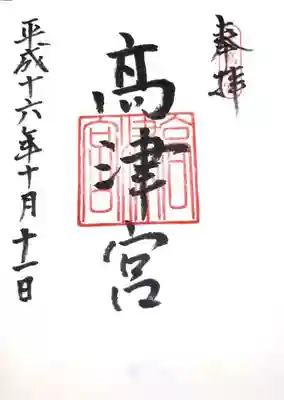 奉拝
髙津宮
平成十六年十月十一日